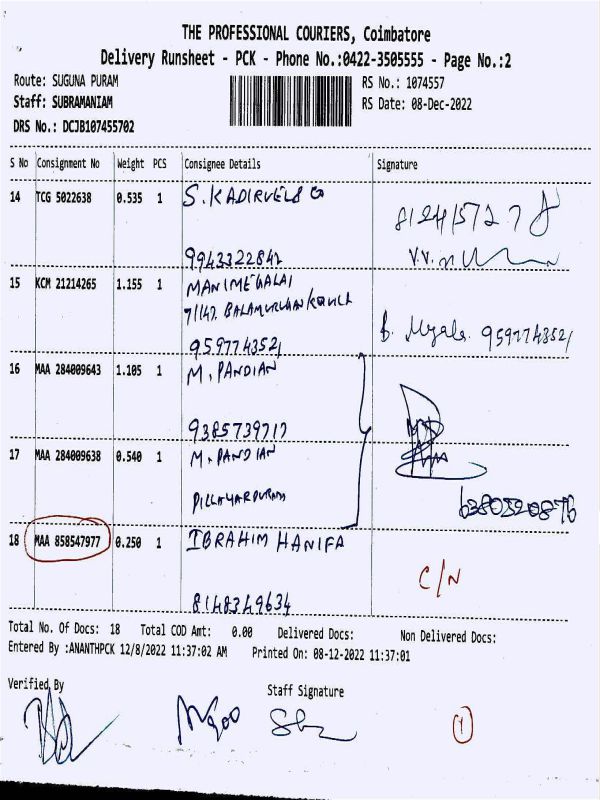 THE PROFESSIONAL COURIERS, Coimbatore
Delivery Runsheet - PCK - Phone No.:0422-3505555 - Page No.:2
Route: SUGUNA PURAM RS No.: 1074557
Staff: SUBRAMANIAM RS Date: 08-Dec-2022
DRS No.: DCJB107455702
S No Consignment No Weight PCS Consignee Details Signature
14 TCG 5022638 0.535 1 S. KADIRVEL & Co
8124157278
9943322842
15 KCM 21214265 1.155 1 MANIMEGALAI
71147. BALAMURUGAN KOVIL
9597743521 9597743521
16 MAA 284009643 1.105 1 M. PANDIAN
9385739717
17 MAA 284009638 0.540 1 M. PANDIAN
PILLAYARPURAM 6380520876
18 MAA 858547977 0.250 1 IBRAHIM HANIFA
C/N
8148349634
Total No. Of Docs: 18 Total COD Amt: 0.00 Delivered Docs: Non Delivered Docs:
Entered By :ANANTHPCK 12/8/2022 11:37:02 AM Printed On: 08-12-2022 11:37:01
Verified By Staff Signature
1